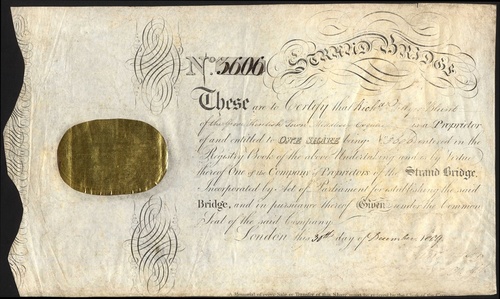 STRAND BRIDGE
No. 3606
These are to Certify that Rich.d
of the Kentish Town is a Proprietor
of and entitled to ONE SHARE being No. entered in the
Registry Book of the above Undertaking and is by virtue
thereof One of the Company of Proprietors of the Strand Bridge,
Incorporated by Act of Parliament for establishing the said
Bridge, and in pursuance thereof Given under the Common
Seal of the said Company.
London this 30th day of December 1809